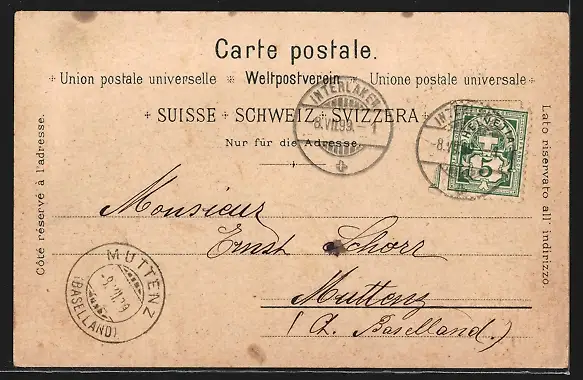 Carte postale.
Union postale universelle * Weltpostverein * Unione postale universale
SUISSE + SCHWEIZ + SVIZZERA
Nur für die Adresse.
Côté réservé à l'adresse.
Lato riservato all' indirizzo
INTERLAKEN
8.VII.99.-1
HELVETIA
5
Monsieur
Ernst Schorr
Muttenz
(Ct. Baselland.)
MUTTENZ
(BASELLAND)